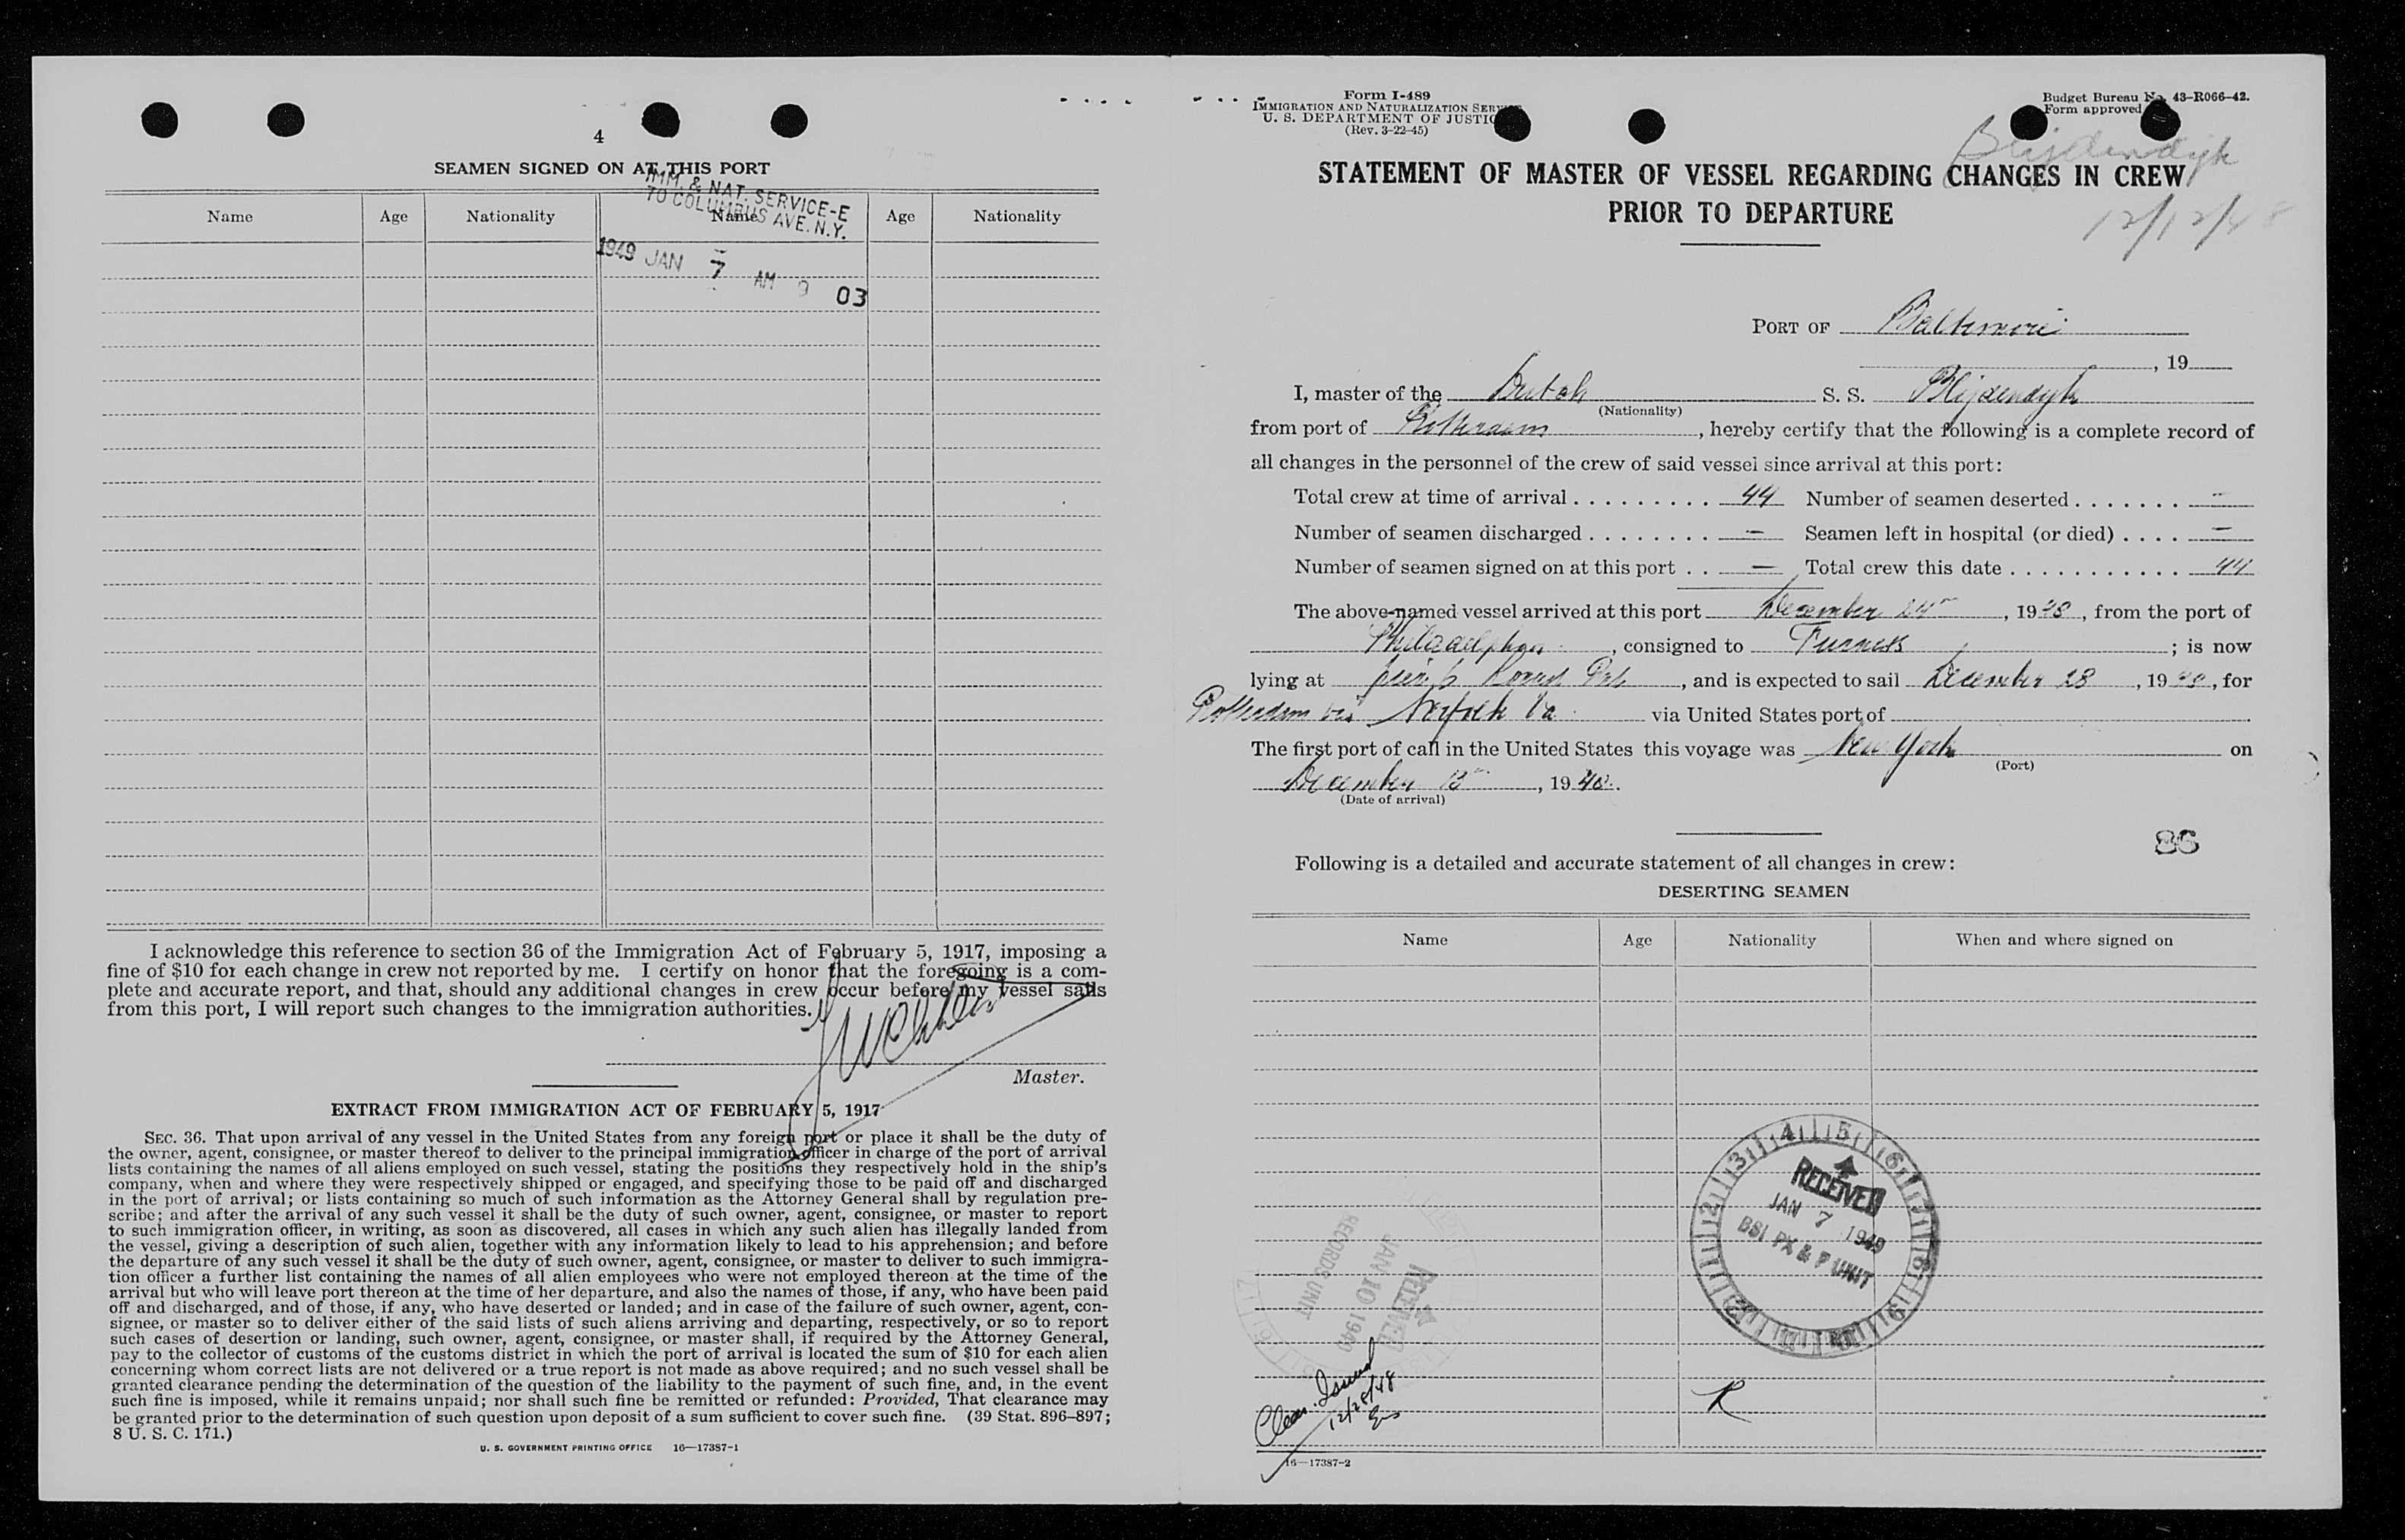 4
SEAMEN SIGNED ON AT THIS PORT
IMM. & NAT. SERVICE-E
TO COLUMBUS AVE. N.Y.
Name Age Nationality Name Age Nationality
1949 JAN 7 AM 9 03
I acknowledge this reference to section 36 of the Immigration Act of February 5, 1917, imposing a
fine of $10 for each change in crew not reported by me. I certify on honor that the foregoing is a com-
plete and accurate report, and that, should any additional changes in crew occur before my vessel sails
from this port, I will report such changes to the immigration authorities.
Master.
EXTRACT FROM IMMIGRATION ACT OF FEBRUARY 5, 1917
SEC. 36. That upon arrival of any vessel in the United States from any foreign port or place it shall be the duty of
the owner, agent, consignee, or master thereof to deliver to the principal immigration officer in charge of the port of arrival
lists containing the names of all aliens employed on such vessel, stating the positions they respectively hold in the ship's
company, when and where they were respectively shipped or engaged, and specifying those to be paid off and discharged
in the port of arrival; or lists containing so much of such information as the Attorney General shall by regulation pre-
scribe; and after the arrival of any such vessel it shall be the duty of such owner, agent, consignee, or master to report
to such immigration officer, in writing, as soon as discovered, all cases in which any such alien has illegally landed from
the vessel, giving a description of such alien, together with any information likely to lead to his apprehension; and before
the departure of any such vessel it shall be the duty of such owner, agent, consignee, or master to deliver to such immigra-
tion officer a further list containing the names of all alien employees who were not employed thereon at the time of the
arrival but who will leave port thereon at the time of her departure, and also the names of those, if any, who have been paid
off and discharged, and of those, if any, who have deserted or landed; and in case of the failure of such owner, agent, con-
signee, or master so to deliver either of the said lists of such aliens arriving and departing, respectively, or so to report
such cases of desertion or landing, such owner, agent, consignee, or master shall, if required by the Attorney General,
pay to the collector of customs of the customs district in which the port of arrival is located the sum of $10 for each alien
concerning whom correct lists are not delivered or a true report is not made as above required; and no such vessel shall be
granted clearance pending the determination of the question of the liability to the payment of such fine, and, in the event
such fine is imposed, while it remains unpaid; nor shall such fine be remitted or refunded: Provided, That clearance may
be granted prior to the determination of such question upon deposit of a sum sufficient to cover such fine. (39 Stat. 896-897;
8 U. S. C. 171.)
U. S. GOVERNMENT PRINTING OFFICE 16—17387-1
Form I-489
IMMIGRATION AND NATURALIZATION SERVICE
U. S. DEPARTMENT OF JUSTICE
(Rev. 3-22-45)
Budget Bureau No. 43-R066-42.
Form approved
Blijdendyk
STATEMENT OF MASTER OF VESSEL REGARDING CHANGES IN CREW
PRIOR TO DEPARTURE
12/12/48
PORT OF Baltimore
, 19
I, master of the Dutch S. S. Blijdendyk
(Nationality)
from port of Rotterdam, hereby certify that the following is a complete record of
all changes in the personnel of the crew of said vessel since arrival at this port:
Total crew at time of arrival 44 Number of seamen deserted –
Number of seamen discharged – Seamen left in hospital (or died) –
Number of seamen signed on at this port – Total crew this date 44
The above-named vessel arrived at this port December 24th, 1948, from the port of
Philadelphia, consigned to Furness; is now
lying at pier 6 Locust Pt, and is expected to sail December 28, 1948, for
Rotterdam via Norfolk Va. via United States port of
The first port of call in the United States this voyage was New York on
(Port)
December, 1948.
(Date of arrival)
86
Following is a detailed and accurate statement of all changes in crew:
DESERTING SEAMEN
Name Age Nationality When and where signed on
RECEIVED
JAN 7 1949
BSI PX & P UNIT
RECEIVED
JAN 10 1949
RECORDS UNIT
Clear. Issued
12/28/48
R
16—17387-2